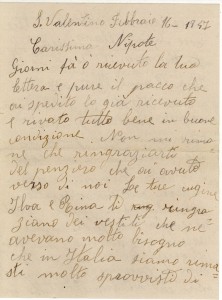 S. Valentino Febbraio 16 - 1947
Carissimo Nipote
Giorni fà ò ricevuto la tua
lettera e pure il pacco che
ai spedito lo già ricevuto
e rivato tutto bene in buone
condizione. Non mi rima
ne che ringraziarti
del penziero che ai avuto
verso di noi. Le tue cugine
Ilva e Gina ti ringra
ziano dei vestiti che ne
avevano molto bisogno
che in Italia siamo rima
sti molto sprovvisti di